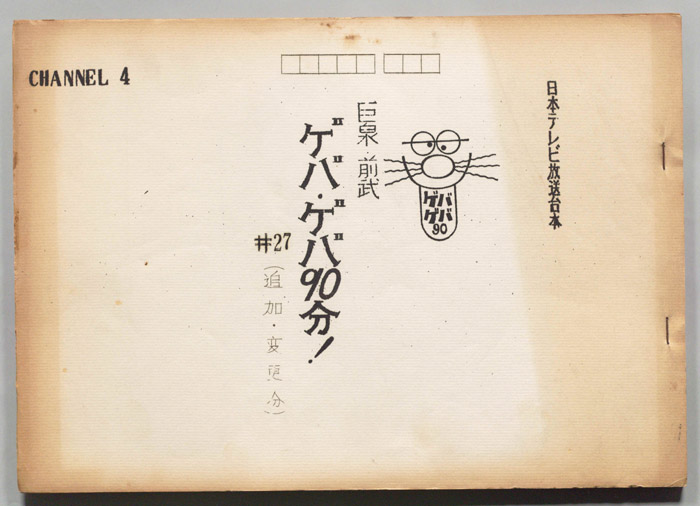 CHANNEL 4
日本テレビ放送台本
ゲバ
ゲバ
90
巨泉・前武
ゲバ・ゲバ90分!
#27
(追加・変更分)